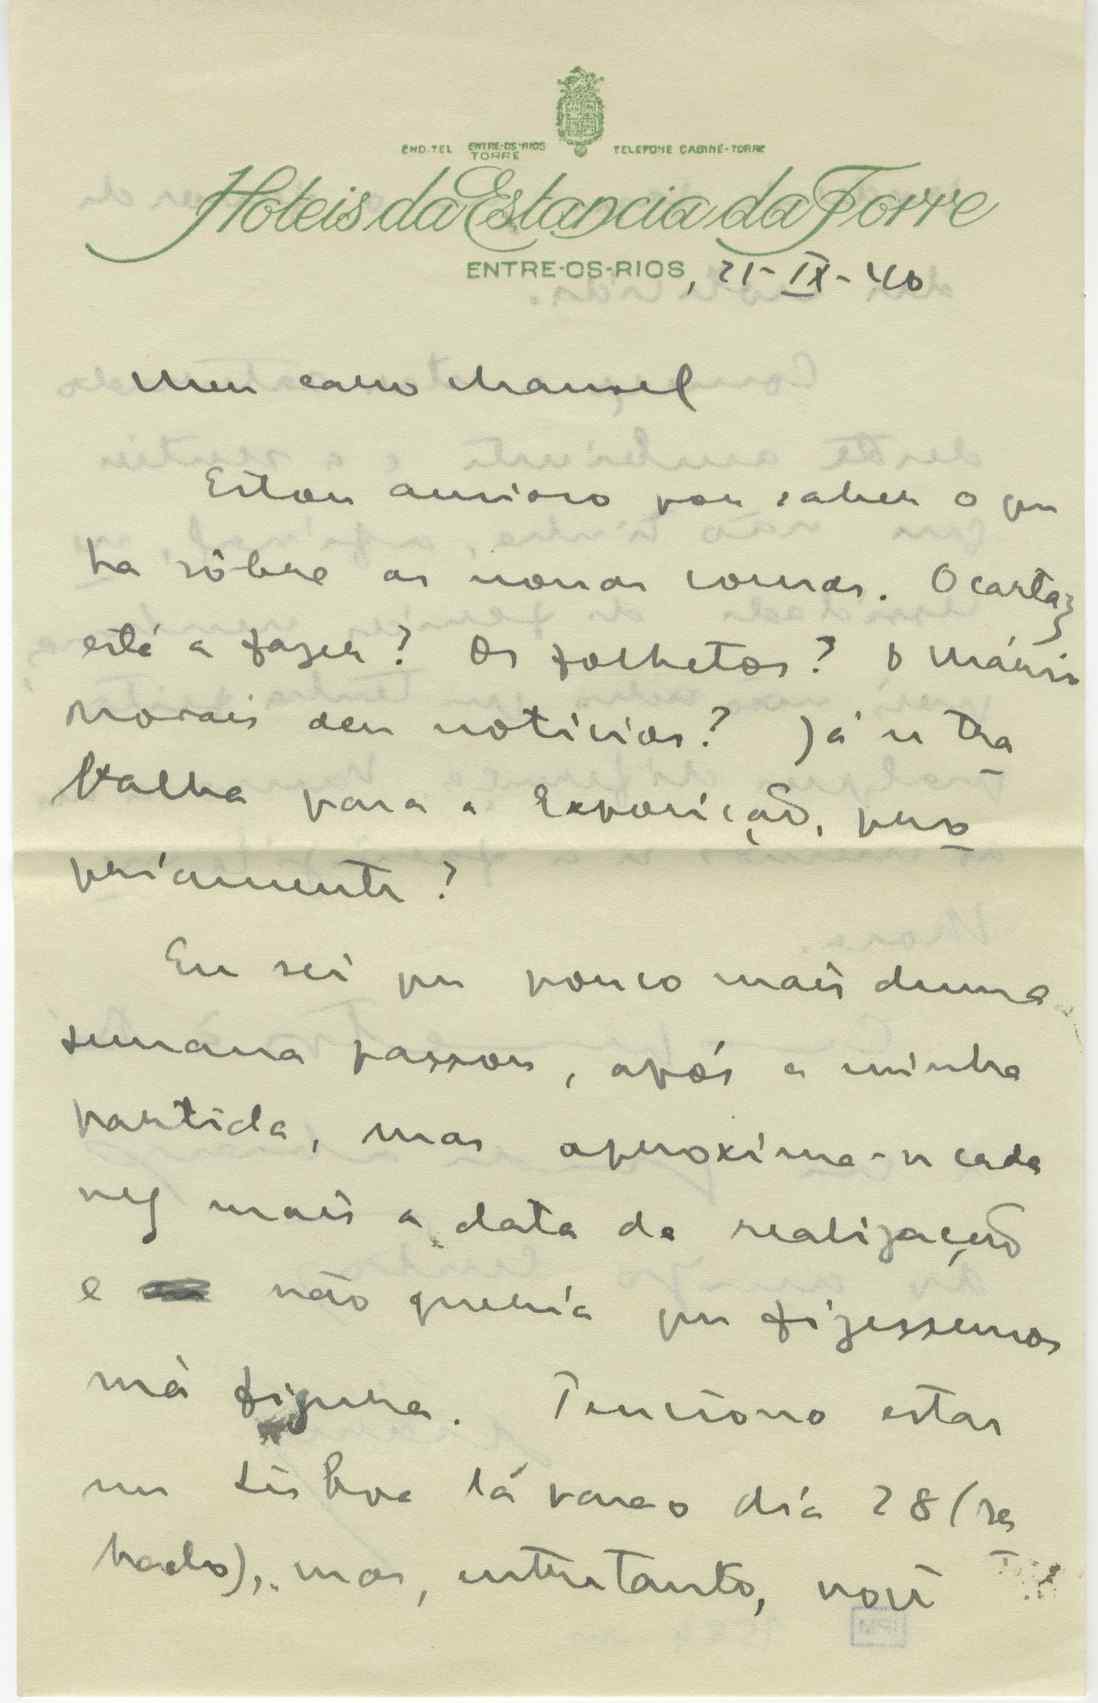 END. TEL ENTRE-OS-RIOS TORRE TELEFONE CABINE-TORRE
Hoteis da Estancia da Torre
ENTRE-OS-RIOS, 21-IX-40
Meu caro Manuel
Estou ansioso por saber o que
ha sôbre as nossas coisas. O cartaz
está a fazer? Os folhetos? O Mário
Morais deu notícias? Já se tra
balha para a Exposição, pro
priamente?
Eu sei que pouco mais duma
semana passou, após a minha
partida, mas aproxima-se cada
vez mais a data da realização
e não queria que fizessemos
má figura. Tenciono estar
em Lisboa lá para o dia 28 (sa
bado), mas, entretanto, você